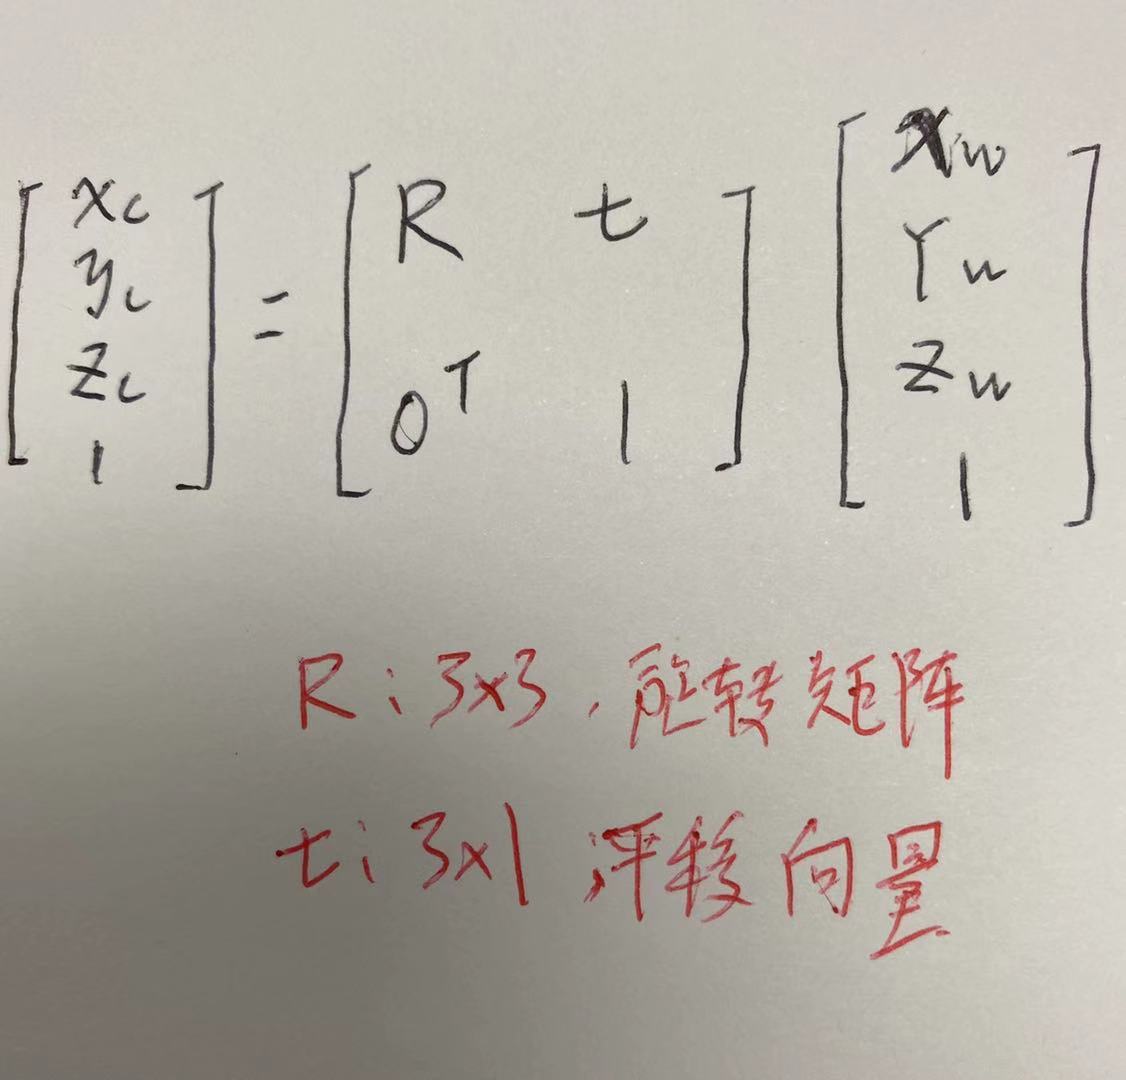 [xc yc zc 1] = [R t 0ᵀ 1] [Xw Yw Zw 1]
R: 3x3, 旋转矩阵
t: 3x1 平移向量